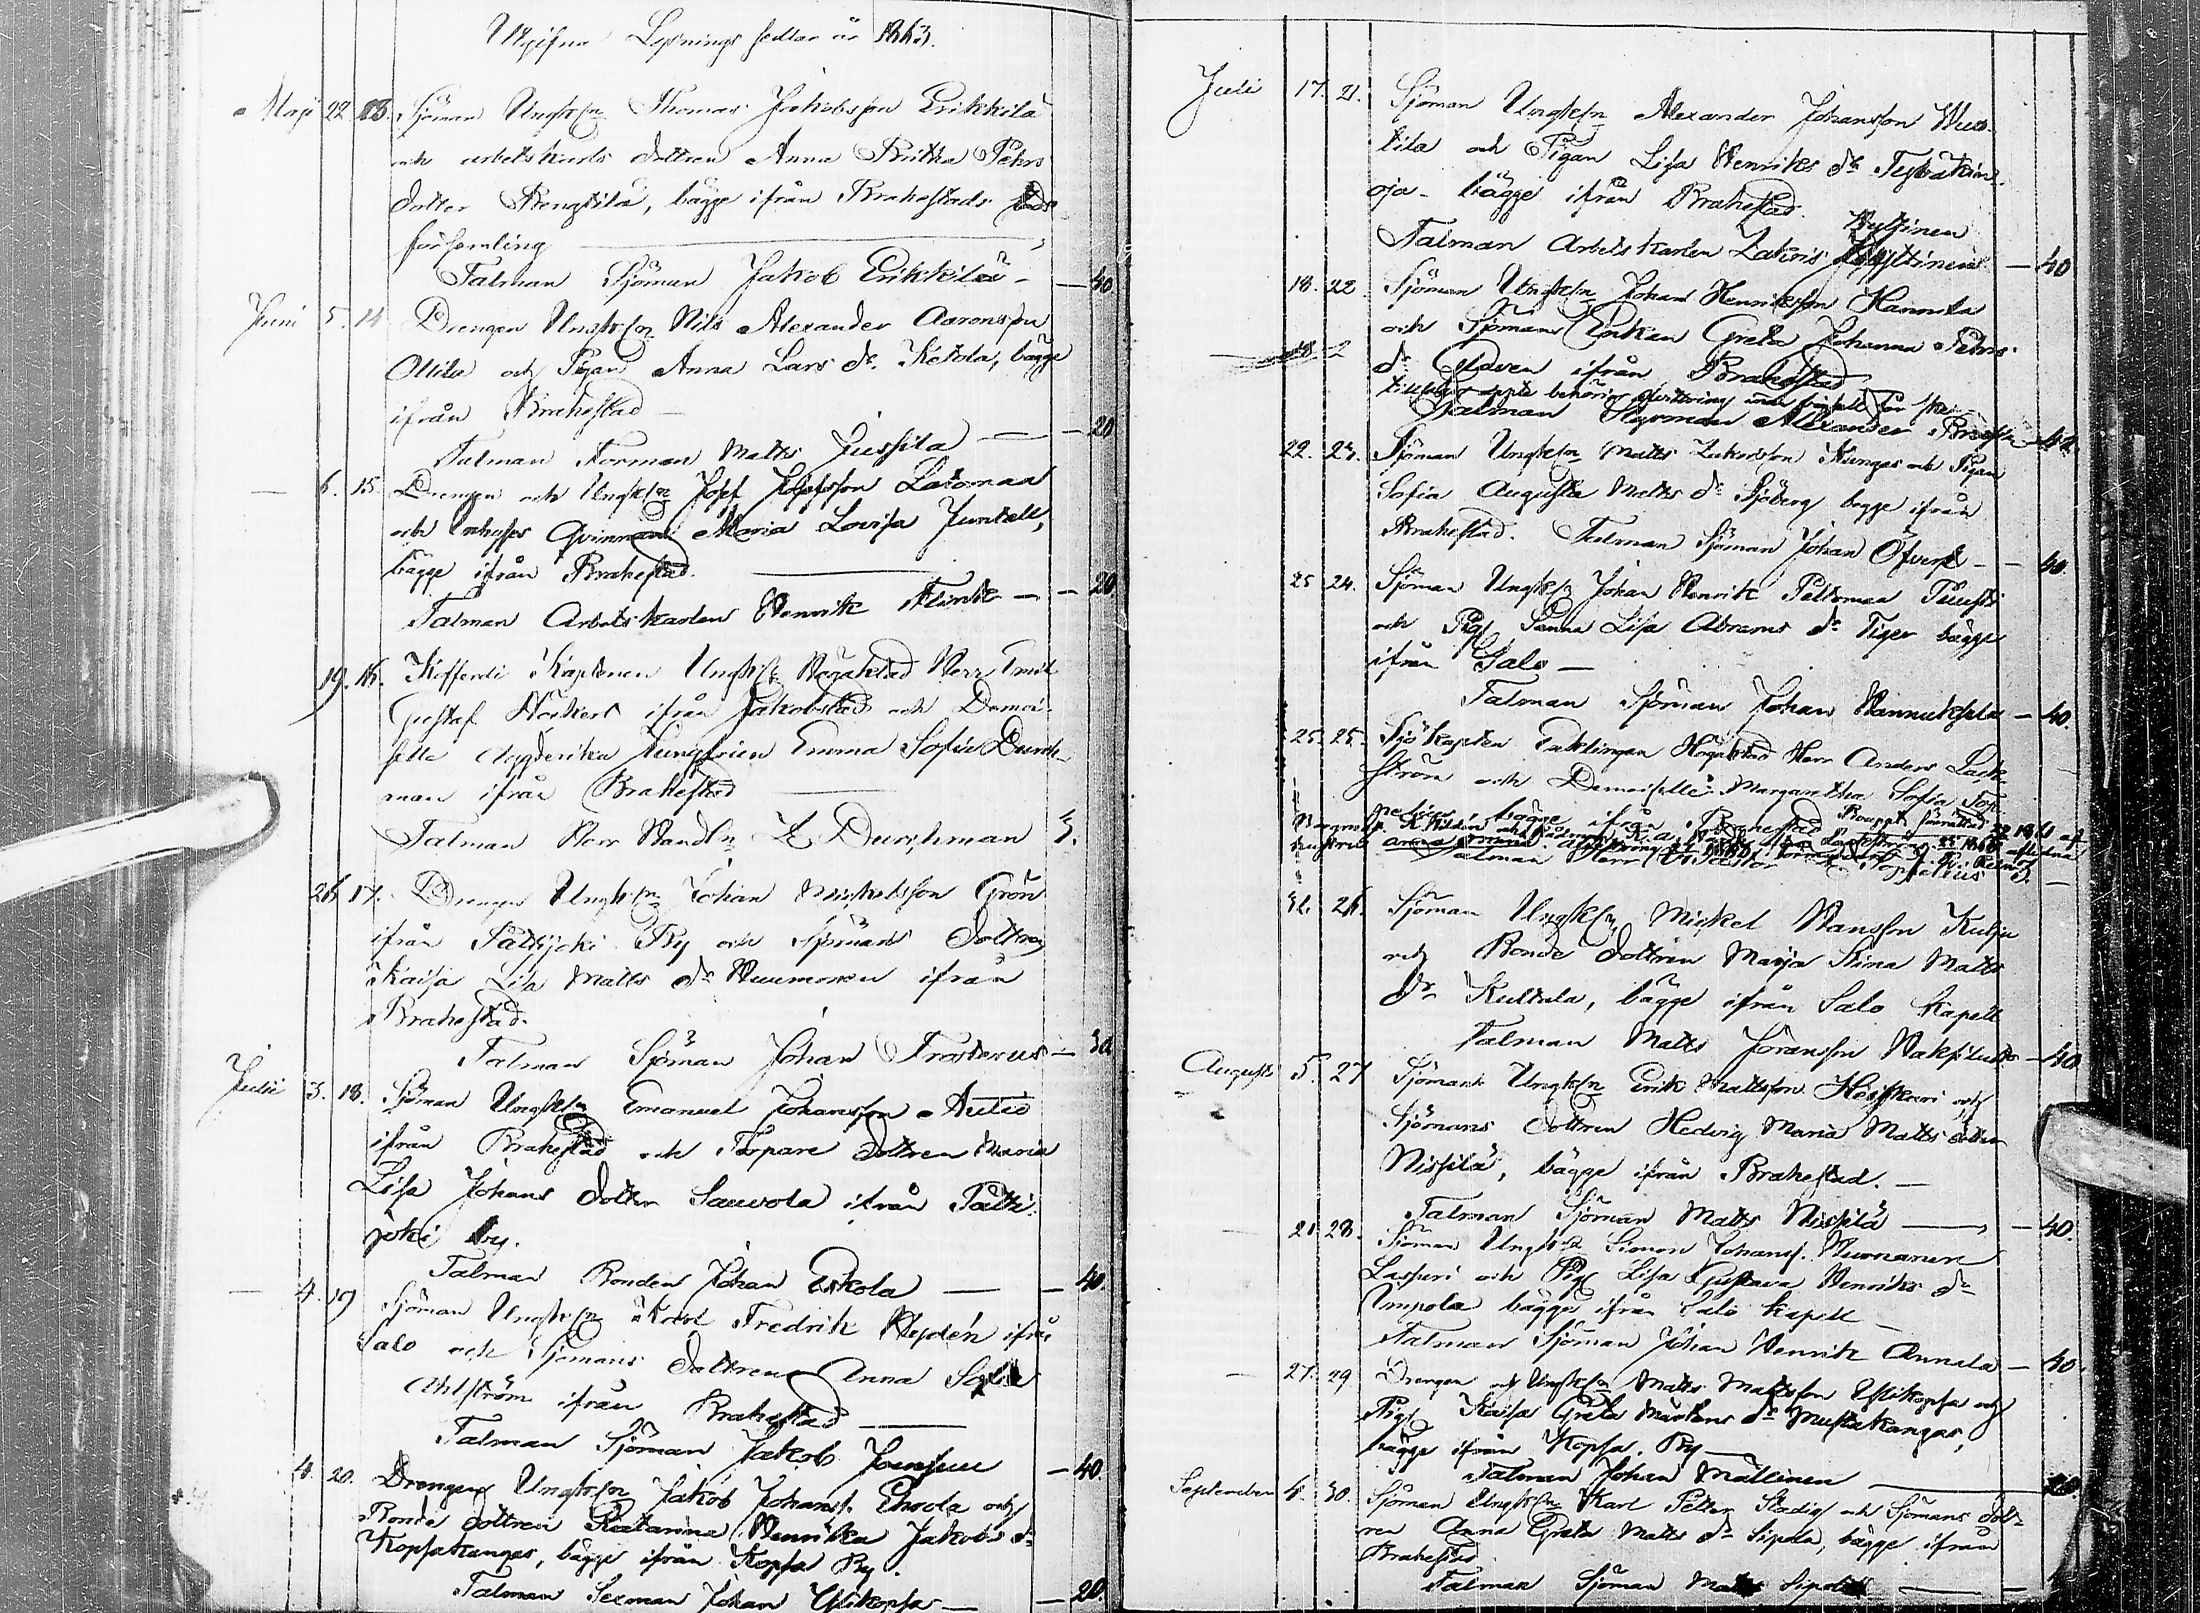 Utgifna Lysnings sedlar år 1863.
Maji 22 13. Sjöman Ungk(n Thomas Jakobsson Erikkilä
och arbetskarls dottren Anna Britha Pehrs
dotter Rengtilä, bägge ifrån Brahestads stads
församling
Talman Sjöman Jakob Erikkilä — 40.
Juni 5. 14 Drengen Ungk(n Nils Alexander Aaronsson
Ollila och Pigan Anna Lars dr. Ketola, bägge
ifrån Brahestad —
Talman Norman Matts Jussila — 20
— 6. 15. Drengen och Ungk(n Josef Josefsson Latomaa
och Inhyses Qvinnan Maria Lovisa Juntell,
bägge ifrån Brahestad.
Talman Arbetskarlen Henrik Flink — 20
19. 16. Koffardi Kaptenen Ungk(n Högaktad Herr Emil
Gustaf Höckert ifrån Jakobstad och Demoi-
selle Jungfrun Emma Sofia Durch-
man ifrån Brahestad
Talman Herr Handl Z Durchman 3.
26 17. Drengen Ungk(n Johan Mickelsson Grön
ifrån Pattijoki By och Sjömans dottren
Kaisa Lisa Matts dr Huumonen ifrån
Brahestad.
Talman Sjöman Johan Frosterus — 30
Julii 3. 18. Sjöman Ungk(n Emanuel Johansson Autio
ifrån Brahestad och Torpare dottren Maria
Lisa Johans dotter Sauvola ifrån Patti-
joki by.
Talman Bonden Johan Eskola — 40
— 4. 19 Sjöman Ungk(n Karl Fredrik Heydén ifrån
Salo och Sjömans dottren Anna Sofia
Ahlström ifrån Brahestad
Talman Sjöman Jakob Joensuu — 40
4. 20. Drengen Ungk(n Jakob Johans. Ehrola och
Bonde dottren Katarina Henrika Jakobs dr
Kopsakangas, bägge ifrån Kopsa By.
Talman Sexman Johan Ylikopsa — 20.
Juli 17. 21. Sjöman Ungk(n Alexander Johansson
tila och Pigan Lisa Henriks dr
oja - bägge ifrån Brahestad.
Hyttinen
Talman Arbetskarlen Zakris Hyttinen — 40
18. 22 Sjöman Ungk(n Johan Henriksson Hannula
och Sjömans Enkan Greta Johanna Pehrs
dr ifrån Brahestad
behörig qvittering
Talman Styrman Alexander — 40
22. 23. Sjöman Ungk(n Matts Zakrisson Kangas och Pigan
Sofia Augusta Matts dr Sjöberg begge ifrån
Brahestad. Talman Sjöman Johan Öfverk — 40.
25 24. Sjöman Ungk(n Johan Henrik Petterman
och Pig Sanna Lisa Abrams dr Tiger bägge
ifrån Salo —
Talman Sjöman Johan Hannuksela — 40.
25. 25. Sjökapten Enklingen Högaktad Herr Anders Lack
ström och Demoiselle Margaretha Sofia Top-
pelius bägge ifrån Brahestad
Talman Herr Toppelius 3.
31. 26. Sjöman Ungk(n Mickel Hansson Kulju
och Bonde dottren Maija Stina Matts
dr Kultala, bägge ifrån Salo Kapell
Talman Matts Joransson — 40
Augusti 5. 27 Sjöman Ungk(n Erik Mattsson Heiskari och
Sjömans dottren Hedvig Maria Matts dotter
Nissilä, bägge ifrån Brahestad. —
Talman Sjöman Matts Nissilä — 40.
21. 28. Sjöman Ungk(n Simon Johans. Huonanen
Lasturi och Pig Lisa Gustava Henriks dr
Umpola bägge ifrån Salo Kapell —
Talman Sjöman Johan Henrik Annala — 40.
27. 29. Drengen och Ungk(n Matts Mattsson Ylikopsa och
Pig Kaisa Greta Mårtens dr Mustakangas,
bägge ifrån Kopsa. By —
Talman Johan Mällinen — 20.
September 4. 30. Sjöman Ungk(n Karl Petter Stadig och Sjömans dott-
ren Anna Greta Matts dr Sipola, bägge ifrån
Brahestad
Talman Sjöman Matts Sipola —